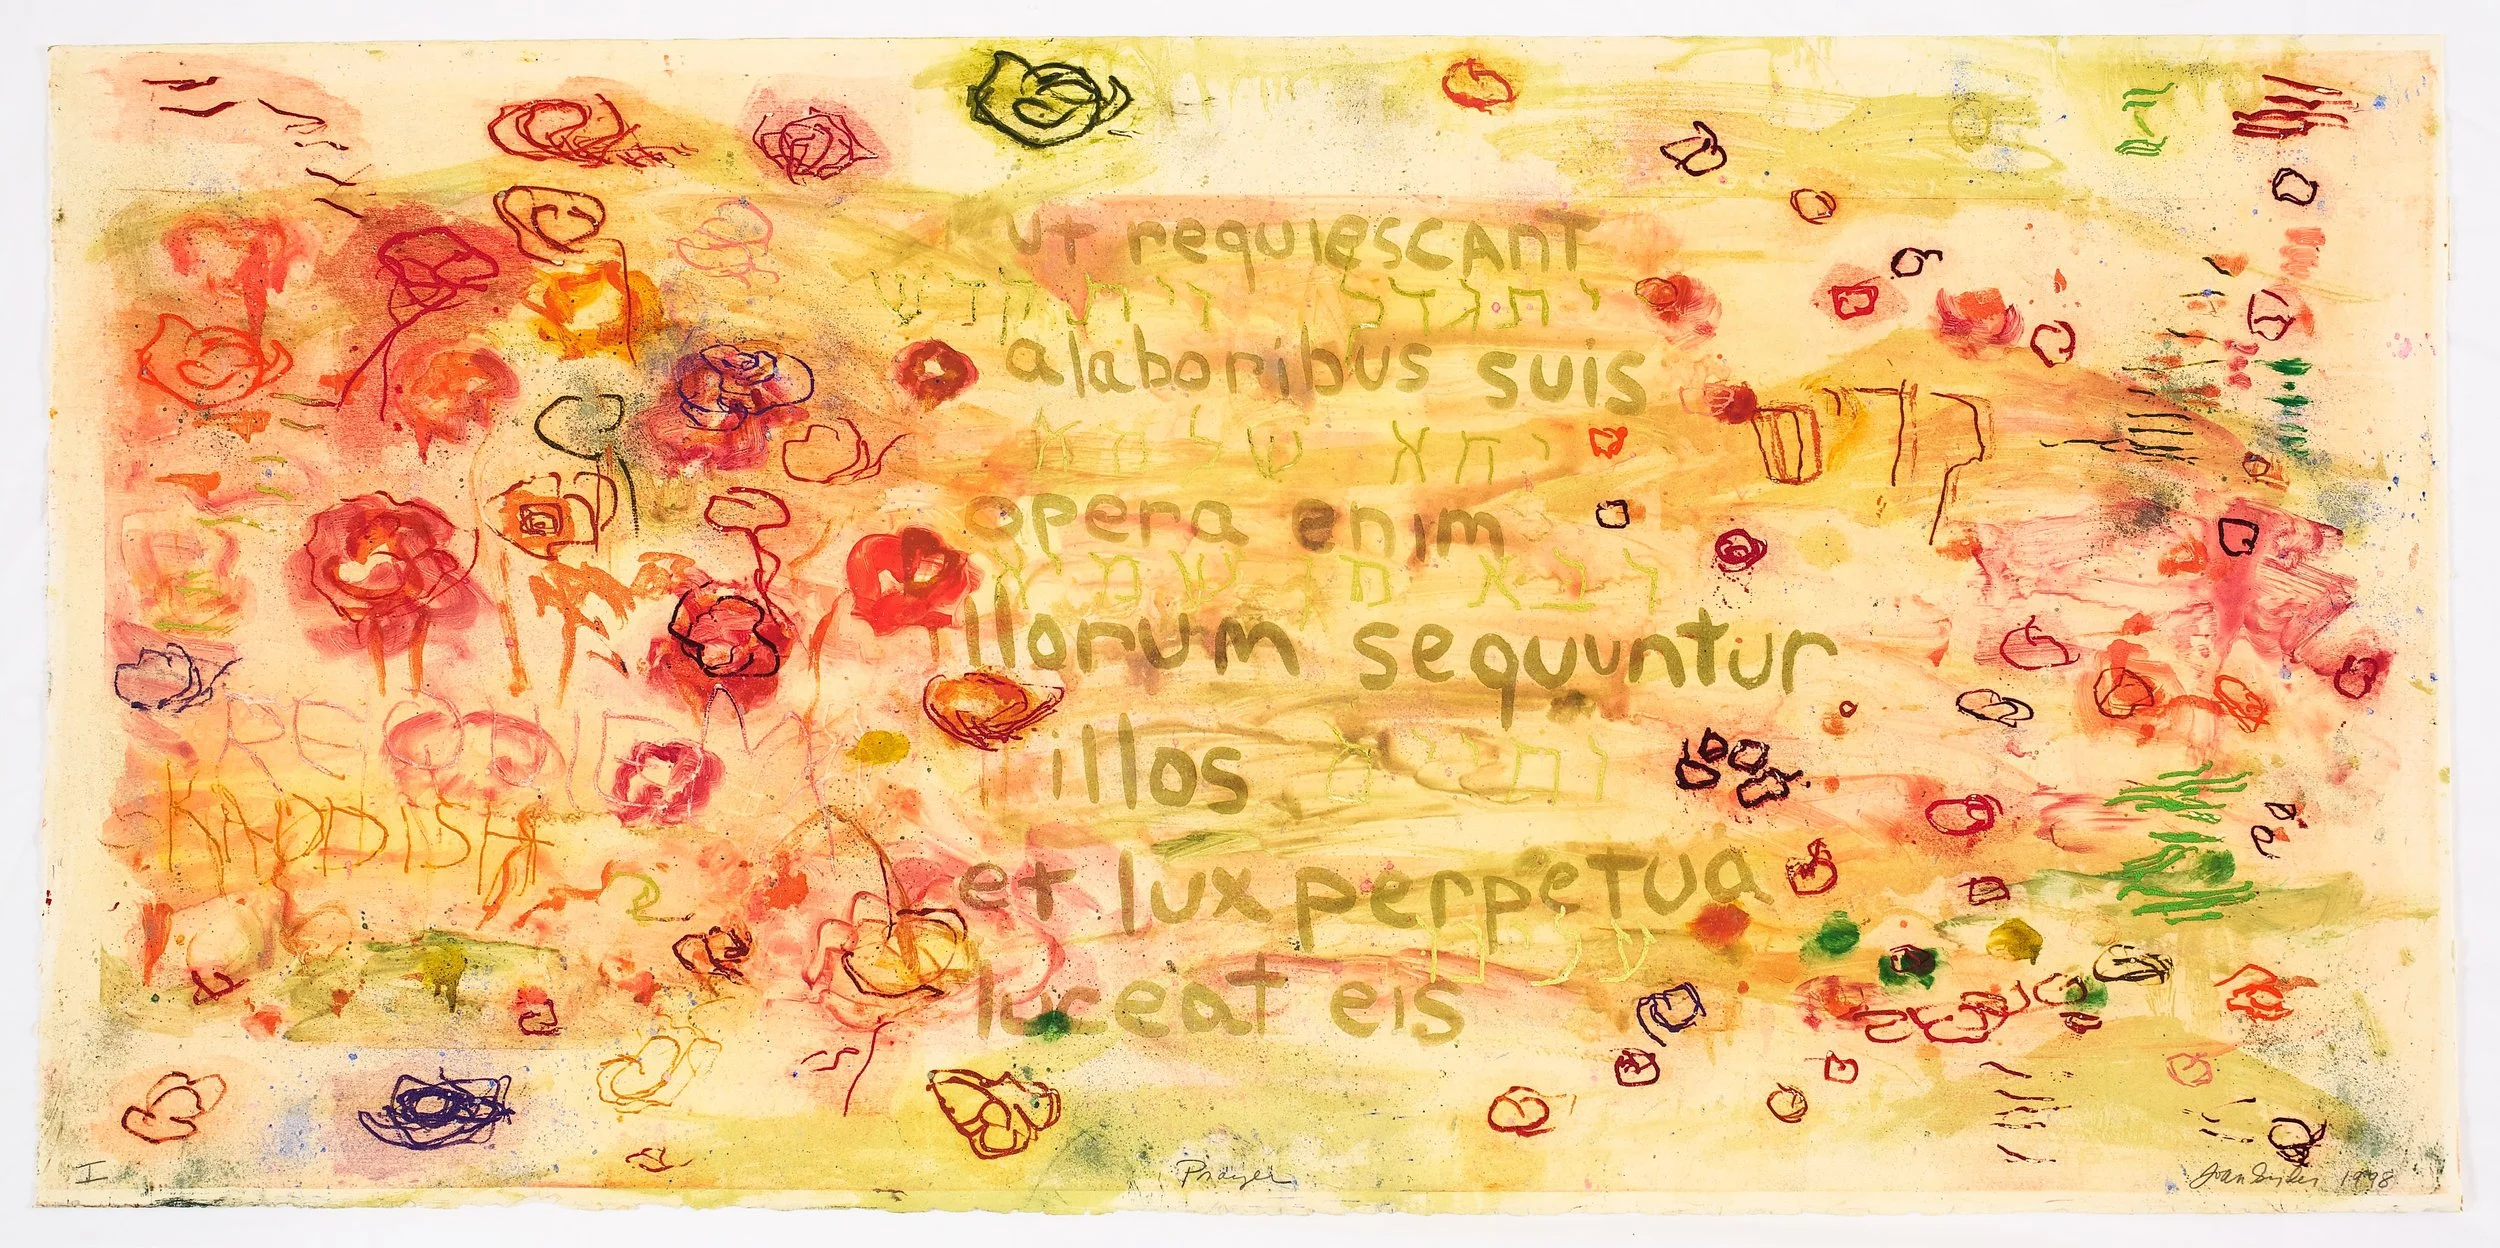 ut requiescant
יתגדל ויתקדש
alaboribus suis
יהא שלמא
opera enim
רבא מן שמיא
llorum sequuntur
illos
וחיים
REQUIEM
KADDISH
et lux perpetua
עלינו
luceat eis
I
Prayer
Joan Snyder 1998